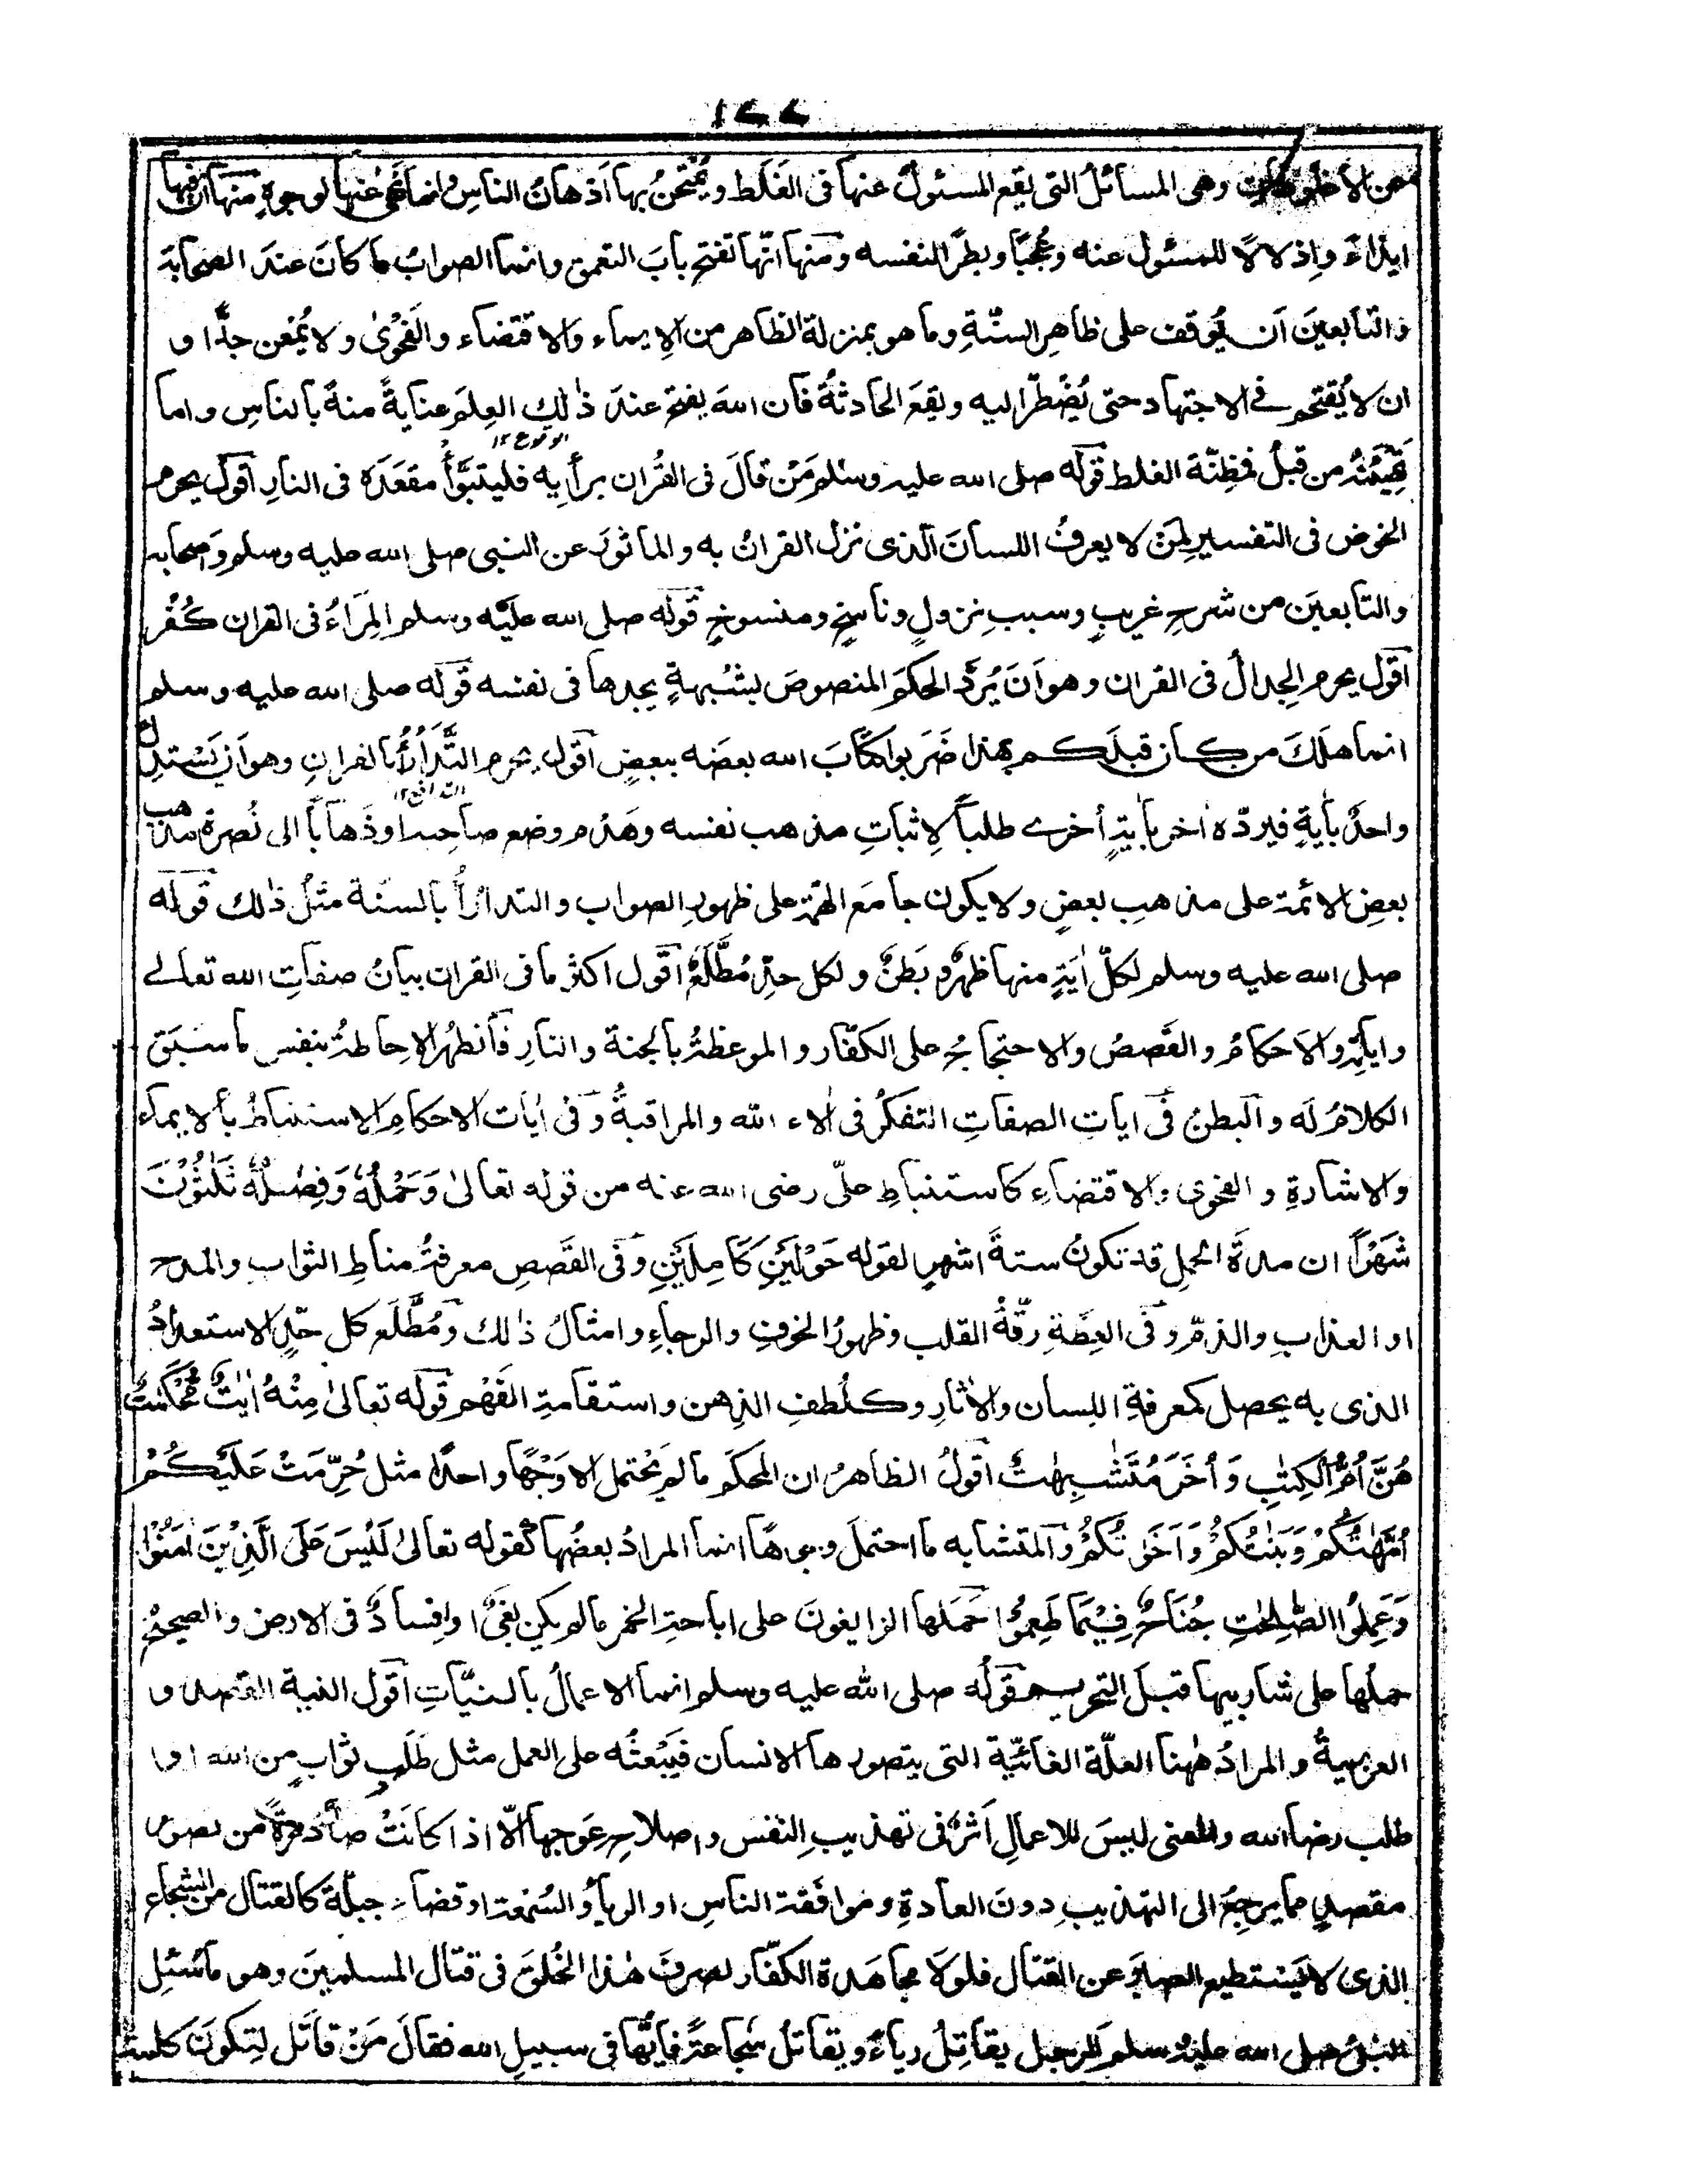 ١٧٧
عن الأغلوطات وهى المسائلُ التى يقع المسئولُ عنها فى الغَلَط ويُمْتَحَنُ بها اَذهانُ الناسِ وانما نَهى عنها لوجوهٍ منها انّ فيها
ايذاءً واِذلالًا للمسئول عنه وعُجْبًا وبطرًا لنفسه ومنها انّها تفتح بابَ التعمق وانما الصوابُ ما كانَ عندَ الصحابة
والتابعينَ اَن يُوقف على ظاهرِ السنّةِ وما هو بمنزلة الظاهر من الإيماء والاقتضاء والفَحْوٰى ولا يُمْعن جدًّا و
ان لا يُقتحم فى الاجتهاد حتى يُضْطرّ اليه ويقعَ الحادثةُ فان اللهَ يفتح عندَ ذٰلك العِلمَ عنايةً منهُ بالناسِ واما
الوقوع ١٢
تَهْيِئتُه من قبلُ فمظِنّة الغلط قوله صلى الله عليه وسلم مَنْ قالَ فى القُران برأيِه فليتبَوَّأ مقعَدَه فى النارِ اَقول يحرم
الخوض فى التفسير لِمَنْ لا يعرفُ اللسانَ الّذى نزل القرانُ به والمأثورَ عن النبى صلى الله عليه وسلم وَاصحابه
والتابعينَ من شرحِ غريبٍ وسببِ نزولٍ وناسخٍ ومنسوخٍ قوله صلى الله عليه وسلم المِرَاءُ فى القران كُفْر
اَقول يحرم الجِدالُ فى القران وهو اَنَ يُرَدَّ الحكمَ المنصوصَ بشُبهةٍ يجدها فى نفسه قوله صلى الله عليه وسلم
انما هلَكَ من كان قبلَكم بهذا ضَرَبوا كتابَ الله بعضَه ببعضٍ اَقول يحرم التَّدَارُأُ بالقرانِ وهو اَن يَسْتدلَّ
التدافع ١٢
واحدٌ بأٰيةٍ فيردّه اٰخر بأٰيةٍ أخرى طلباً لِاثباتِ مذهب نفسه وهَدْم وضع صاحبه اوذَهاباً الى نُصرة مذهب
بعضِ الائمة على مذهبِ بعضٍ ولا يكون جامعَ الهمّة على ظهورِ الصواب والتدارُأ بالسنّة مثلُ ذٰلك قوله
صلى الله عليه وسلم لكلّ اٰيَةٍ منها ظهرٌ وبَطنٌ ولكل حدٍّ مُطَّلَعٌ اَقول اكثر ما فى القران بيانُ صفاتِ الله تعالى
واياتِه والاَحكامُ والقَصصُ والاحتجاجُ على الكفّار والموعظةُ بالجنة والنارِ فالظهرُ الاحاطةُ بنفس ما سبَق
الكلامُ لَه والبطنُ فى اياتِ الصفاتِ التفكرُ فى اٰلاء الله والمراقبةُ وفى اٰيات الاحكامِ الاستنباطُ بالايماء
والاشارةِ والفحوى والاقتضاءِ كاستنباطِ علىّ رضى الله عنه من قوله تعالىٰ وَحَمْلُهٗ وَفِصٰلُهٗ ثَلٰثُوْنَ
شَهْرًا ان مدةَ الحملِ قد تكونُ ستةَ اشهرٍ لقوله حَوْلَيْنِ كَامِلَيْنِ وفى القَصصِ معرفةُ مناطِ الثواب والمدح
او العذابِ والذمّ وفى العِظَةِ رقّةُ القلب وظهورُ الخوفِ والرجاءِ وامثالُ ذٰلك ومُطَّلَع كل حدٍّ الاستعدادُ
الذى به يحصل كمعرفةِ اللسان والاٰثارِ وكلُطفِ الذهن واستقامةِ الفَهْم قوله تعالىٰ مِنْهُ اٰيٰتٌ مُّحْكَمٰتٌ
هُنَّ اُمُّ الْكِتٰبِ وَاُخَرُ مُتَشٰبِهٰتٌ اقولُ الظاهرُ ان المحكمَ ما لم يَحْتمل الا وَجْهًا واحدًا مثل حُرِّمَتْ عَلَيْكُمْ
اُمَّهٰتُكُمْ وَبَنٰتُكُمْ وَاَخَوٰتُكُمْ والمتشابه ما احتملَ وجوهًا انما المرادُ بعضُها كقوله تعالىٰ لَيْسَ عَلَى الَّذِيْنَ اٰمَنُوْا
وَعَمِلُوا الصّٰلِحٰتِ جُنَاحٌ فِيْمَا طَعِمُوْا حَمَلها الزايغونَ على اباحةِ الخمر ما لم يكن بَغْىٌ او افسادٌ فى الارض والصحيحُ
حملُها على شاربيها قبلَ التحريم قوله صلى الله عليه وسلم انما الاعمالُ بالنيّاتِ اَقول النية القصد و
العزيمةُ والمرادُ هٰهنا العلّة الغائيّة التى يتصورها الانسان فيَبْعثُه على العمل مثل طَلَبِ ثوابٍ من الله او
طلب رضا الله والمعنى ليسَ للاعمالِ اَثرٌ فى تهذيبِ النفس واصلاحِ عَوجها الّا اذا كانَتْ صادرةً من تصور
مقصدٍ مما يرجعُ الى التهذيبِ دونَ العادةِ وموافَقة الناسِ او الرياء والسُمْعة او قضاء جبلّةٍ كالقتال من الشجاع
الذى لا يَسْتطيع الصبرَ عن القتال فلولا مجاهَدة الكفّار لصرفَ هٰذا الخُلقَ فى قتال المسلمينَ وهو ما سُئِل
النبىُّ صلى الله عليه وسلم الرجل يقاتِلُ رياءً ويقاتلُ شجاعةً فايّها فى سبيلِ الله فقالَ مَنْ قاتَل لِتكونَ كلمة